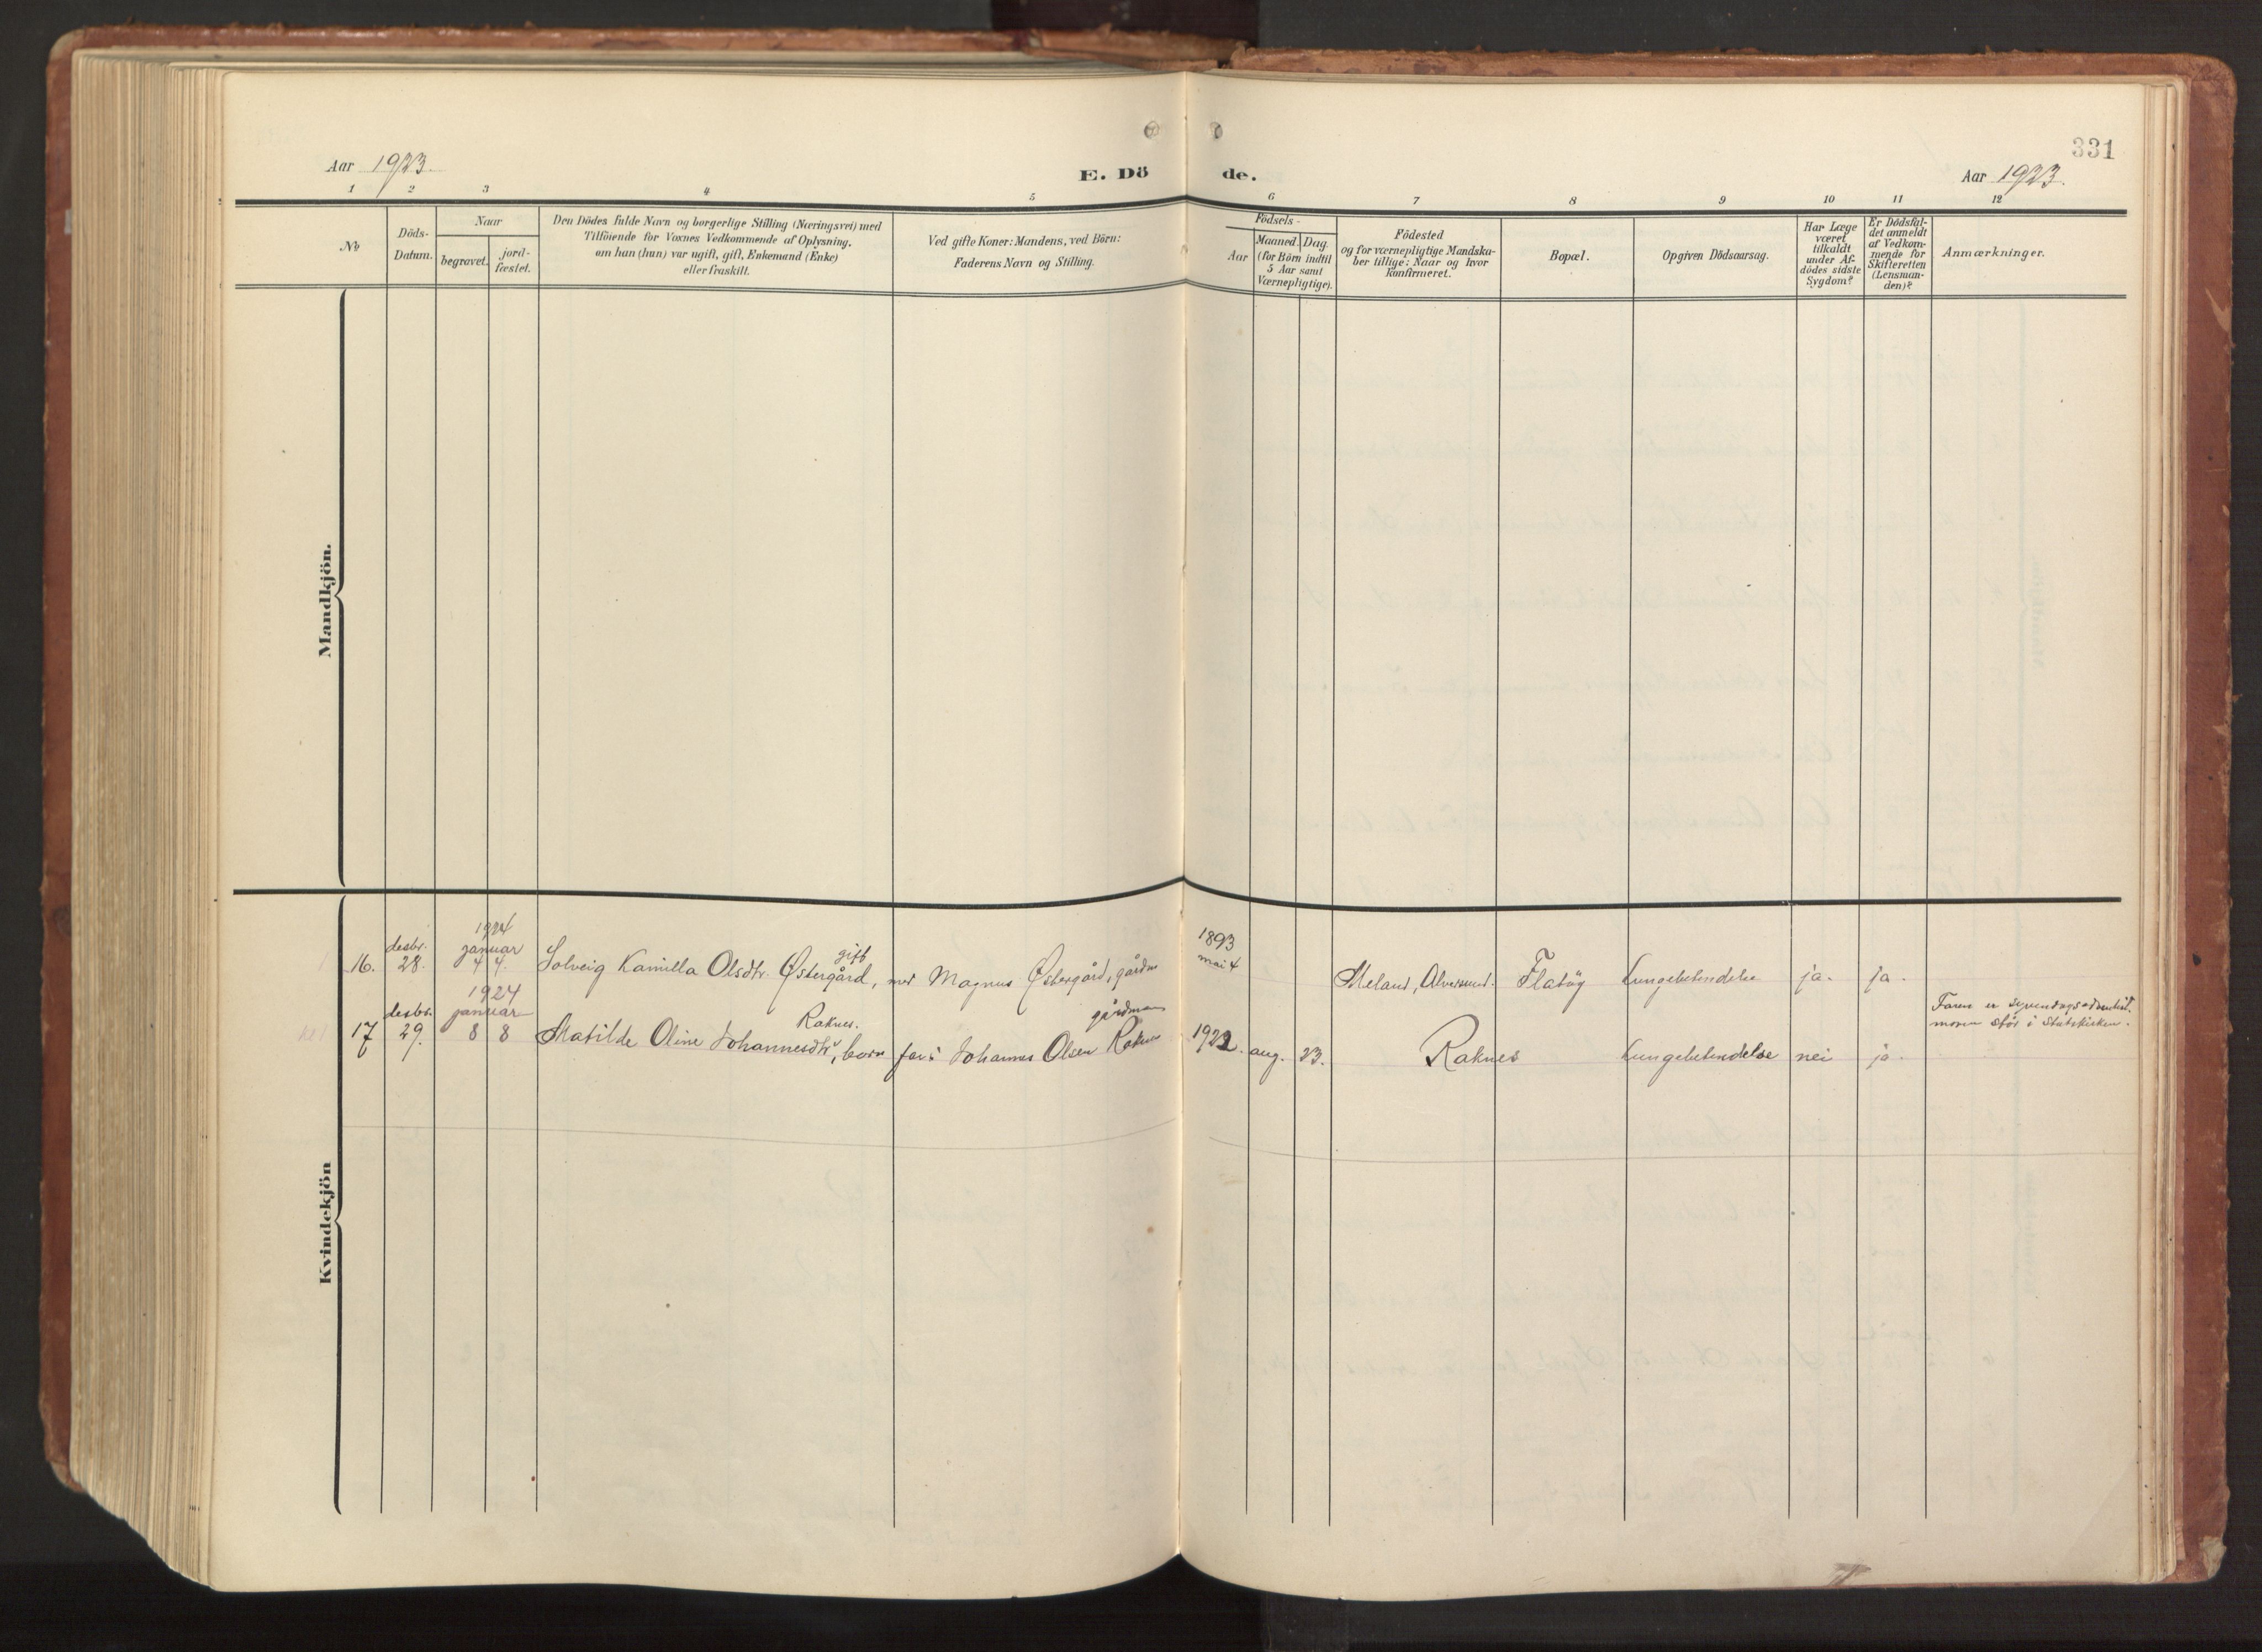 331
Aar 1923.
E. Dö de.
Aar 1923.
1 2 3 4 5 6 7 8 9 10 11 12
No
Döds-
Datum.
Naar
begravet.
jord-
fæstet.
Den Dödes fulde Navn og borgerlige Stilling (Næringsvei) med
Tilföiende for Voxnes Vedkommende af Oplysning,
om han (hun) var ugift, gift, Enkemand (Enke)
eller fraskilt.
Ved gifte Koner: Mandens, ved Börn:
Faderens Navn og Stilling.
Födsels-
Aar
Maaned. Dag.
(for Börn indtil
5 Aar samt
Værnepligtige).
Födested
og for værnepligtige Mandska-
ber tillige: Naar og hvor
konfirmeret.
Bopæl.
Opgiven Dödsaarsag.
Har Læge
været
tilkaldt
under Af-
dödes sidste
Sygdom?
Er Dödsfal-
det anmeldt
af Vedkom-
mende for
Skifteretten
(Lensman-
den)?
Anmærkninger.
Mandkjön.
Kvindekjön
1924
desbr. januar gift 1893
16. 28. 4 4. Solveig Kamilla Olsdtr. Østergård, med Magnus Østergård, gårdm mai 4 Meland, Alversund. Flatøy Lungebetendelse ja. ja.
1924
desbr. januar Raknes. gårdman
Faren er syvendagsadventist.
moren står i Statskirken.
17 29. 8 8 Matilde Oline Johannesdtr, barn far: Johannes Olsen Raknes 1922. aug. 23. Raknes Lungebetendelse nei ja.